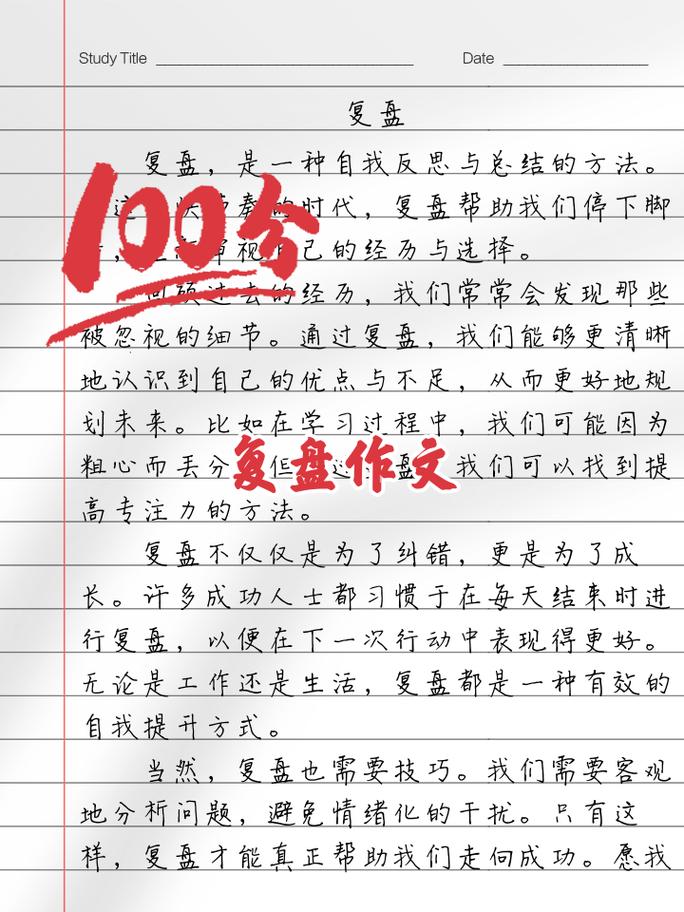 Study Title
Date
复盘
复盘，是一种自我反思与总结的方法。
100分
这 快节奏的时代，复盘帮助我们停下脚
，重新审视自己的经历与选择。
回顾过去的经历，我们常常会发现那些
被忽视的细节。通过复盘，我们能够更清晰
地认识到自己的优点与不足，从而更好地规
划未来。比如在学习过程中，我们可能因为
粗心而丢分 但 过 盘 我们可以找到提
复盘作文
高专注力的方法。
复盘不仅仅是为了纠错，更是为了成
长。许多成功人士都习惯于在每天结束时进
行复盘，以便在下一次行动中表现得更好。
无论是工作还是生活，复盘都是一种有效的
自我提升方式。
当然，复盘也需要技巧。我们需要客观
地分析问题，避免情绪化的干扰。只有这
样，复盘才能真正帮助我们走向成功。愿我